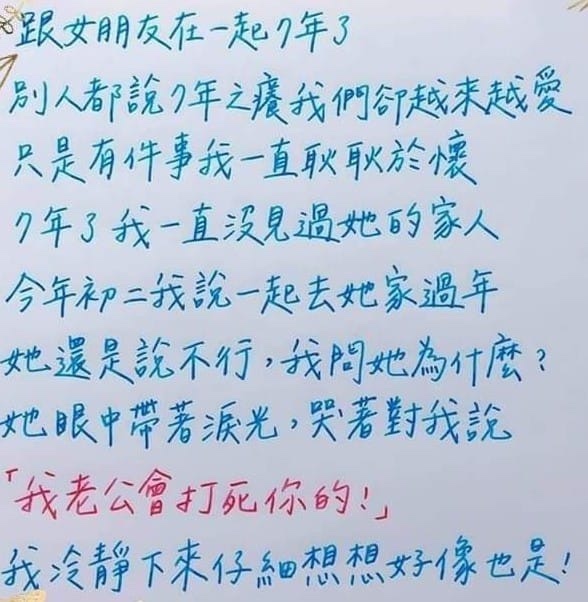 跟女朋友在一起7年了
別人都說7年之癢我們卻越來越愛
只是有件事我一直耿耿於懷
7年了我一直沒見過她的家人
今年初二我說一起去她家過年
她還是說不行，我問她為什麼？
她眼中帶著淚光，哭著對我說
「我老公會打死你的！」
我冷靜下來仔細想想好像也是！